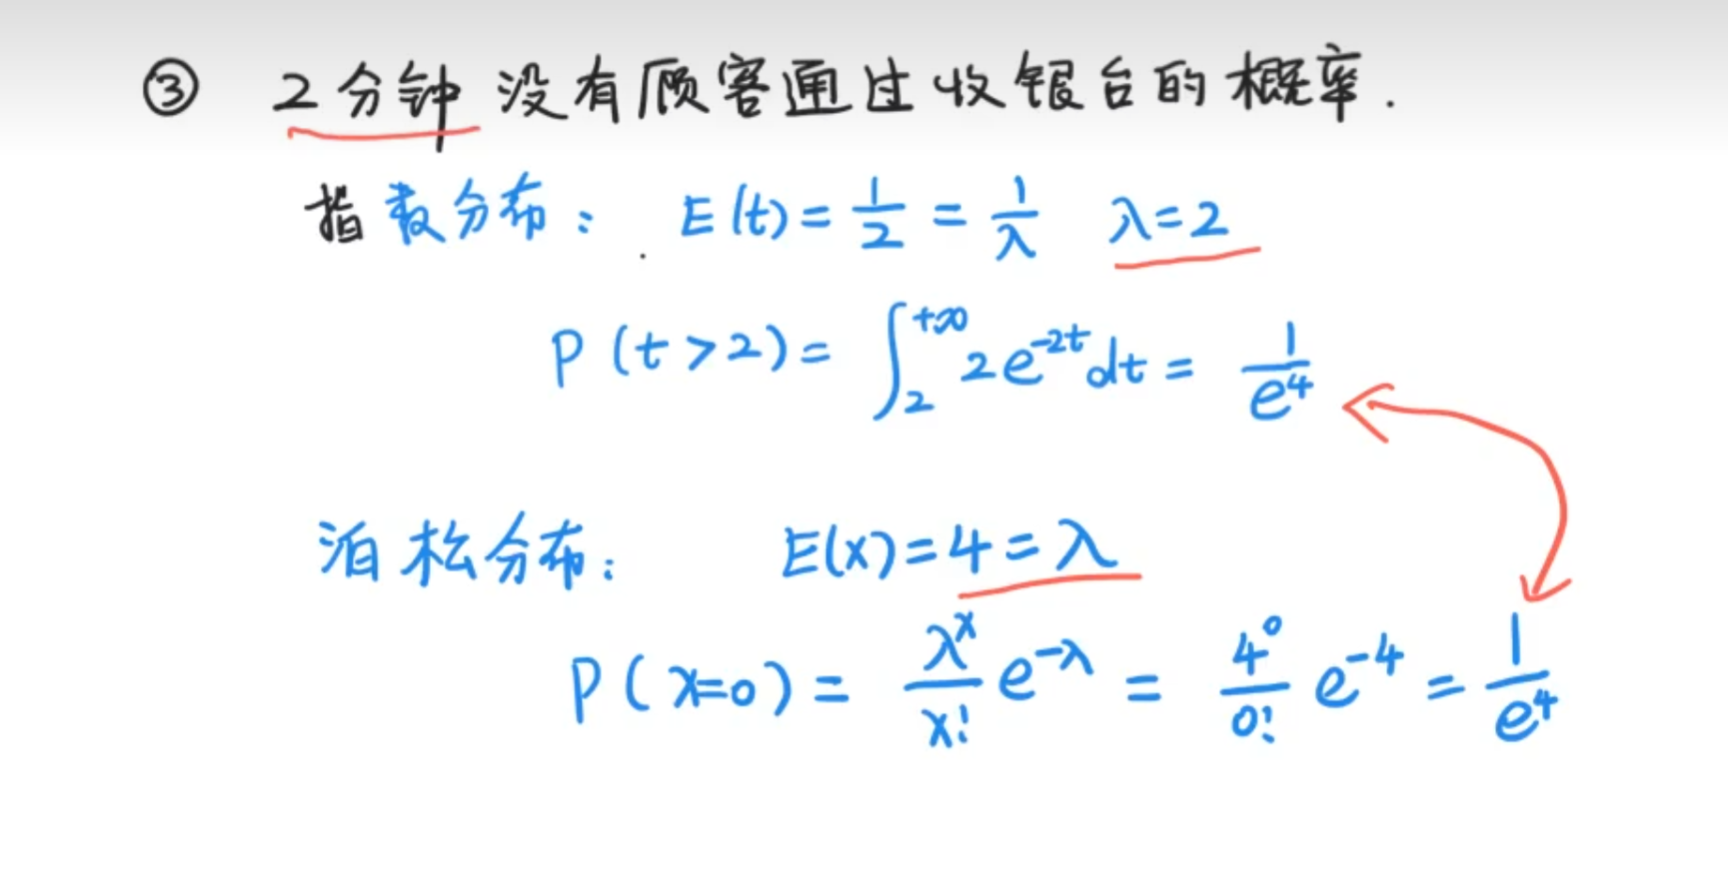 ③ 2分钟没有顾客通过收银台的概率.
指数分布: E(t)=1/2=1/λ λ=2
P(t>2)=∫₂^{+∞} 2e^{-2t}dt=1/e⁴
泊松分布: E(x)=4=λ
P(x=0)=λ^x/x! e^{-λ}=4⁰/0! e^{-4}=1/e⁴